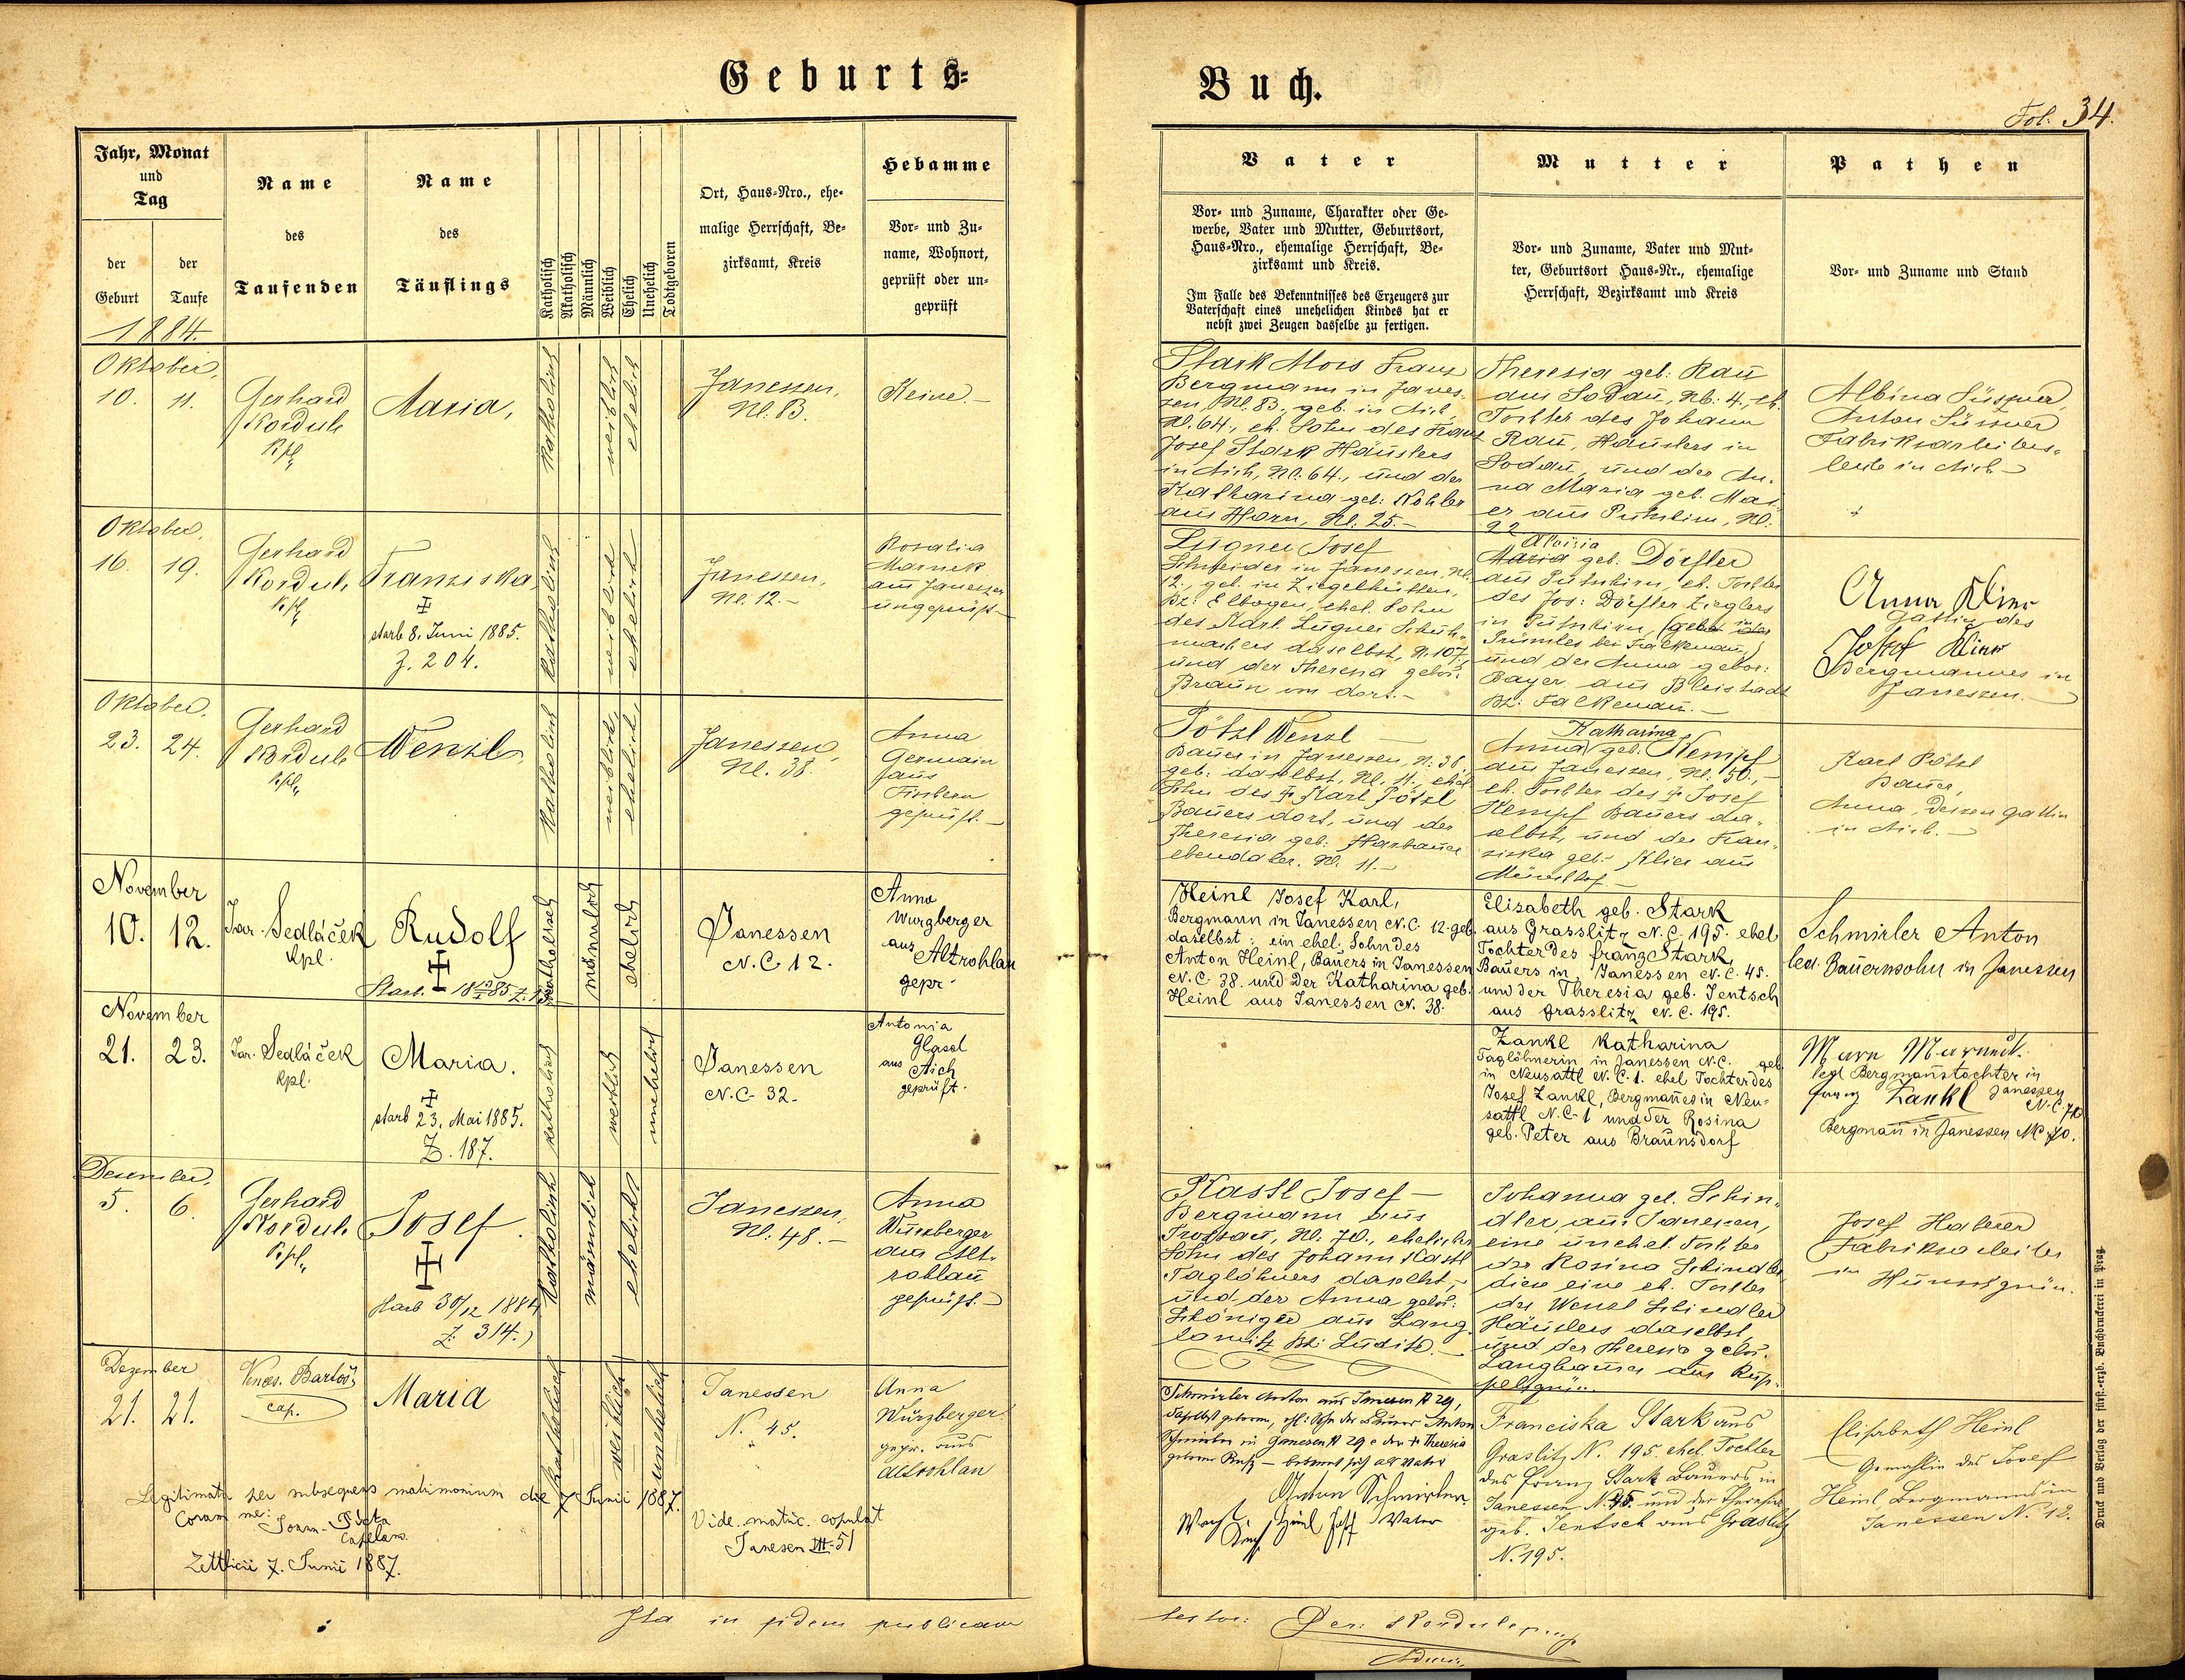 Geburts=
Buch.
Fol. 34.
Jahr, Monat
und
Tag
der
Geburt
der
Taufe
Name
des
Taufenden
Name
des
Täuflings
Katholisch
Akatholisch
Männlich
Weiblich
Ehelich
Unehelich
Todtgeboren
Ort, Haus=Nro., ehe=
malige Herrschaft, Be=
zirksamt, Kreis
Hebamme
Vor= und Zu=
name, Wohnort,
geprüft oder un=
geprüft
Vater
Vor= und Zuname, Charakter oder Ge=
werbe, Vater und Mutter, Geburtsort,
Haus=Nro., ehemalige Herrschaft, Be=
zirksamt und Kreis.
Im Falle des Bekenntnisses des Erzeugers zur
Vaterschaft eines unehelichen Kindes hat er
nebst zwei Zeugen dasselbe zu fertigen.
Mutter
Vor= und Zuname, Vater und Mut=
ter, Geburtsort Haus=Nr., ehemalige
Herrschaft, Bezirksamt und Kreis
Pathen
Vor= und Zuname und Stand
1884.
Oktober,
10. 11.
Gerhard
Kordule
Kpl.
Maria,
katholisch
weiblich
ehelich
Janessen,
Nl. 83.
Keine.–
Stark Alois Franz
Bergmann in Janes-
sen, Nl. 83., geb. in Aich,
Nl. 64., eh. Sohn des Franz
Josef Stark Häuslers
in Aich, Nl. 64., und der
Katharina geb. Kohler
aus Horn, Nl. 25.–
Theresia geb. Rau
aus Sodau, Nb. 4., eh.
Tochter des Johann
Rau, Häuslers in
Sodau, und der An-
na Maria geb. Mai-
er aus Putschirn, Nl.
22
Albina Süssner,
Anton Süssner
Fabriksarbeiters-
leute in Aich–
Oktober,
16. 19.
Gerhard
Kordule
Kpl.
Franziska,
starb 8. Juni 1885.
Z. 204.
katholisch
weiblich
ehelich
Janessen,
Nl. 12.–
Rosalia
Marnek
aus Janessen
ungeprüft–
Lugner Josef
Schneider in Janessen, Nl.
12., geb. in Ziegelhütten,
Bz: Elbogen, ehel. Sohn
des Karl Lugner Schuh-
machers daselbst, N. 107,
und der Theresia gebor.
Braun von dort.–
Aloisia
Maria geb. Dörfler
aus Putschirn, eh. Tochter
des Jos: Dörfler Zieglers
in Putschirn, (gebt. in
Prünles bei Falkenau,)
und der Anna gebor:
Bayer aus Bleistadt
Bz: Falkenau.–
Anna Klier
Gattin des
Josef Klier
Bergmannes in
Janessen.–
Oktober,
23. 24.
Gerhard
Kordule
Kpl.
Wenzl,
katholisch
weiblich,
ehelich,
Janessen,
Nl. 38.
Anna
Germain
aus
Fischern
geprüft.–
Pötzl Wenzl –
Bauer in Janessen, N. 38,
geb. daselbst, Nl. 11., ehel
Sohn des † Karl Pötzl
Bauers dort, und der
Theresia geb. Harbauer
ebendaher. Nl. 11.–
Katharina
Anna geb. Kempf
aus Janessen, Nl. 50.,–
eh. Tochter des † Josef
Kempf Bauers da-
selbst, und der Fran-
ziska geb. Klier aus
Münchhof–
Karl Pötzl
Bauer,
Anna, dessen Gattin
in Aich.–
November
10. 12.
Jar. Sedláček
kpl.
Rudolf
Starb
katholisch
männlich
ehelich
Janessen
N.C 12.
Anna
Wurzberger
aus
Altrohlau
gepr.
Heinl Josef Karl,
Bergmann in Janessen N.C. 12. geb.
daselbst; ein ehel. Sohn des
Anton Heinl, Bauers in Janessen
N.C. 38. und der Katharina geb.
Heinl aus Janessen N. 38.
Elisabeth geb. Stark
aus Grasslitz N.C. 195. ehel
Tochter des franz Stark,
Bauers in Janessen N.C. 45.
und der Theresia geb. Jentsch
aus Grasslitz N.C. 195.
Schmirler Anton
led. Bauernsohn in Janessen
November
21. 23.
Jar. Sedláček
kpl.
Maria.
starb 23. Mai 1885.
Z. 187.
katholisch
weiblich
unehelich
Janessen
N.C. 32.
Antonia
Glassl
aus Aich
geprüft.
Zankl Katharina
Taglöhnerin in Janessen N.C. geb
in Neusattl N.C. 1. ehel Tochter des
Josef Zankl, Bergmañes in Neu-
sattl N.C. 1 und der Rosina
geb. Peter aus Braunsdorf
legt Bergmañstochter in
Janessen
N.C. 70
Franz Zankl
Bergmañ in Janessen NC 70.
Dezember,
5. 6.
Gerhard
Kordule
Kpl.
Josef.
starb 30/12 1884
Z. 314.)
katholisch
männlich
ehelich
Janessen,
Nl. 48.–
Anna
Würzberger
aus Alt-
rohlau
geprüft.–
Kastl Josef–
Bergmann aus
Trossau, Nl. 70., ehelicher
Sohn des Johann Kastl
Taglöhners daselbst,–
und der Anna gebor:
Schöniger aus Lang-
lamitz Bz: Luditz.–
Johanna geb. Schin-
dler aus Janessen,
eine unehel. Tochter
der Rosina Schindler
diese eine eh. Tochter
des Wenzl Schindler
Häuslers daselbst,
und der Theresia gebor.
Langhammer aus Rup-
pelsgrün.
Josef Haberer
Fabriksarbeiter
in Hunnsgrün.
Dezember
21. 21.
Vences. Bartoš,
cap.
Maria
katholisch
weiblich
unehelich
Janessen
N. 45.
Anna
Würzberger
gepr. aus
Altrohlau
Legitimata per subsequens matrimonium die 7. Junii 1887.
Coram me:
Capellano.
Zettlicii 7. Junii 1887.
Vide. matric. copulat
Janesen VII–51
Schmirler Anton aus Janesen N 29,
daselbst geboren, ehl. Sohn des Bauers Anton
Schmirler in Janesen N 29 & der † Theresia
– bekennt sich als Vater
Anton Schmirler
Vater
Heinl Josef
Franciska Stark aus
Graslitz N. 195 ehel. Tochter
des Franz Stark Bauers in
Janessen N. 45. und der Theresia
geb. Jentsch aus Graslitz
N. 195.
Elisabeth Heinl
Gemahlin des Josef
Heinl, Bergmanns in
Janessen N. 12.
Ita in fidem publicam
testor: Ger. Kordule
Druck und Verlag der fürst.=erzb. Buchdruckerei in Prag.